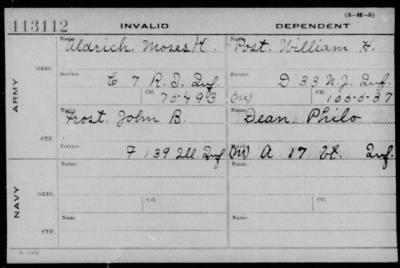 113112
INVALID
DEPENDENT
(3-H-5)
ARMY
ORIG.
Name
Aldrich, Moses H.
Name
Post. William H.
Service
C 7 R. I. Inf.
Service
D 33 N. J. Inf.
Ctf.
70493
(M)
Ctf.
100537
CTF.
Name
Frost. John B.
Name
Dean. Philo
Service
F 139 Ill. Inf.
(M) A 17 Vt. Inf.
NAVY
ORIG.
Name
Name
CTF.
Name
Name